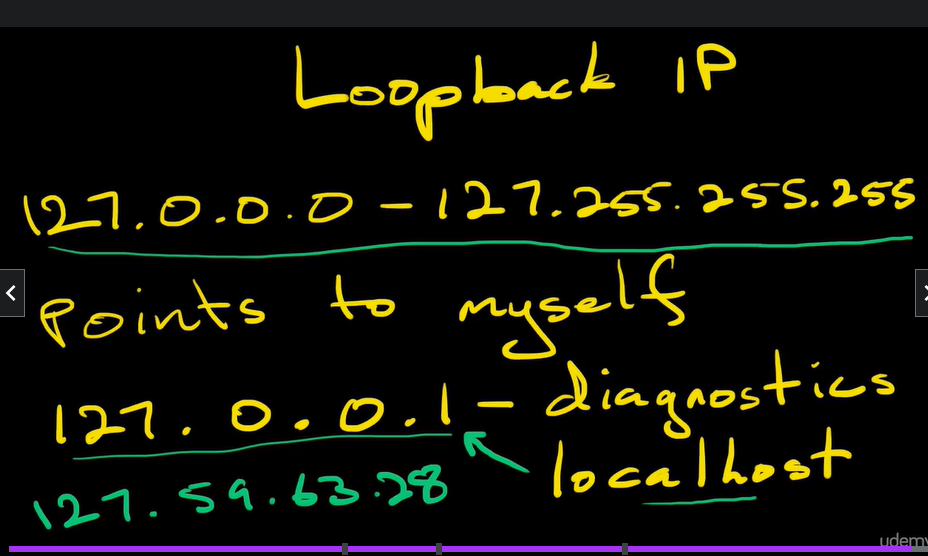 Loopback IP
127.0.0.0 - 127.255.255.255
Points to myself
127.0.0.1 - diagnostics
localhost
127.59.63.28
udemy